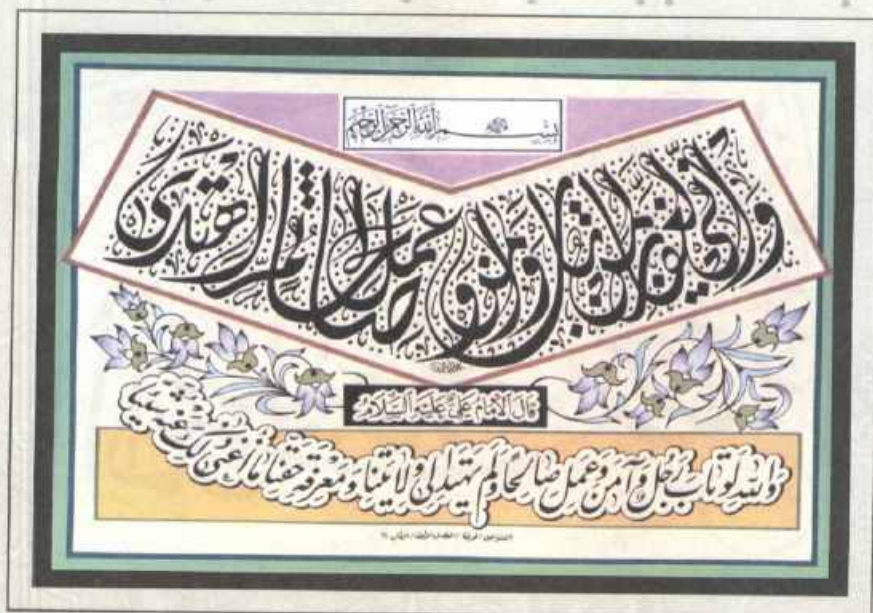 بِسْمِ اللهِ الرَّحْمٰنِ الرَّحِيمِ
وَإِنِّي لَغَفَّارٌ لِمَنْ تَابَ وَآمَنَ وَعَمِلَ صَالِحًا ثُمَّ اهْتَدَى
قَالَ الْإِمَامُ عَلِيٌّ عَلَيْهِ السَّلَامُ
وَاللهِ لَوْ تَابَ رَجُلٌ وَآمَنَ وَعَمِلَ صَالِحًا وَلَمْ يَهْتَدِ إِلَى وِلَايَتِنَا وَمَعْرِفَةِ حَقِّنَا مَا أَغْنَى ذَلِكَ عَنْهُ شَيْئًا